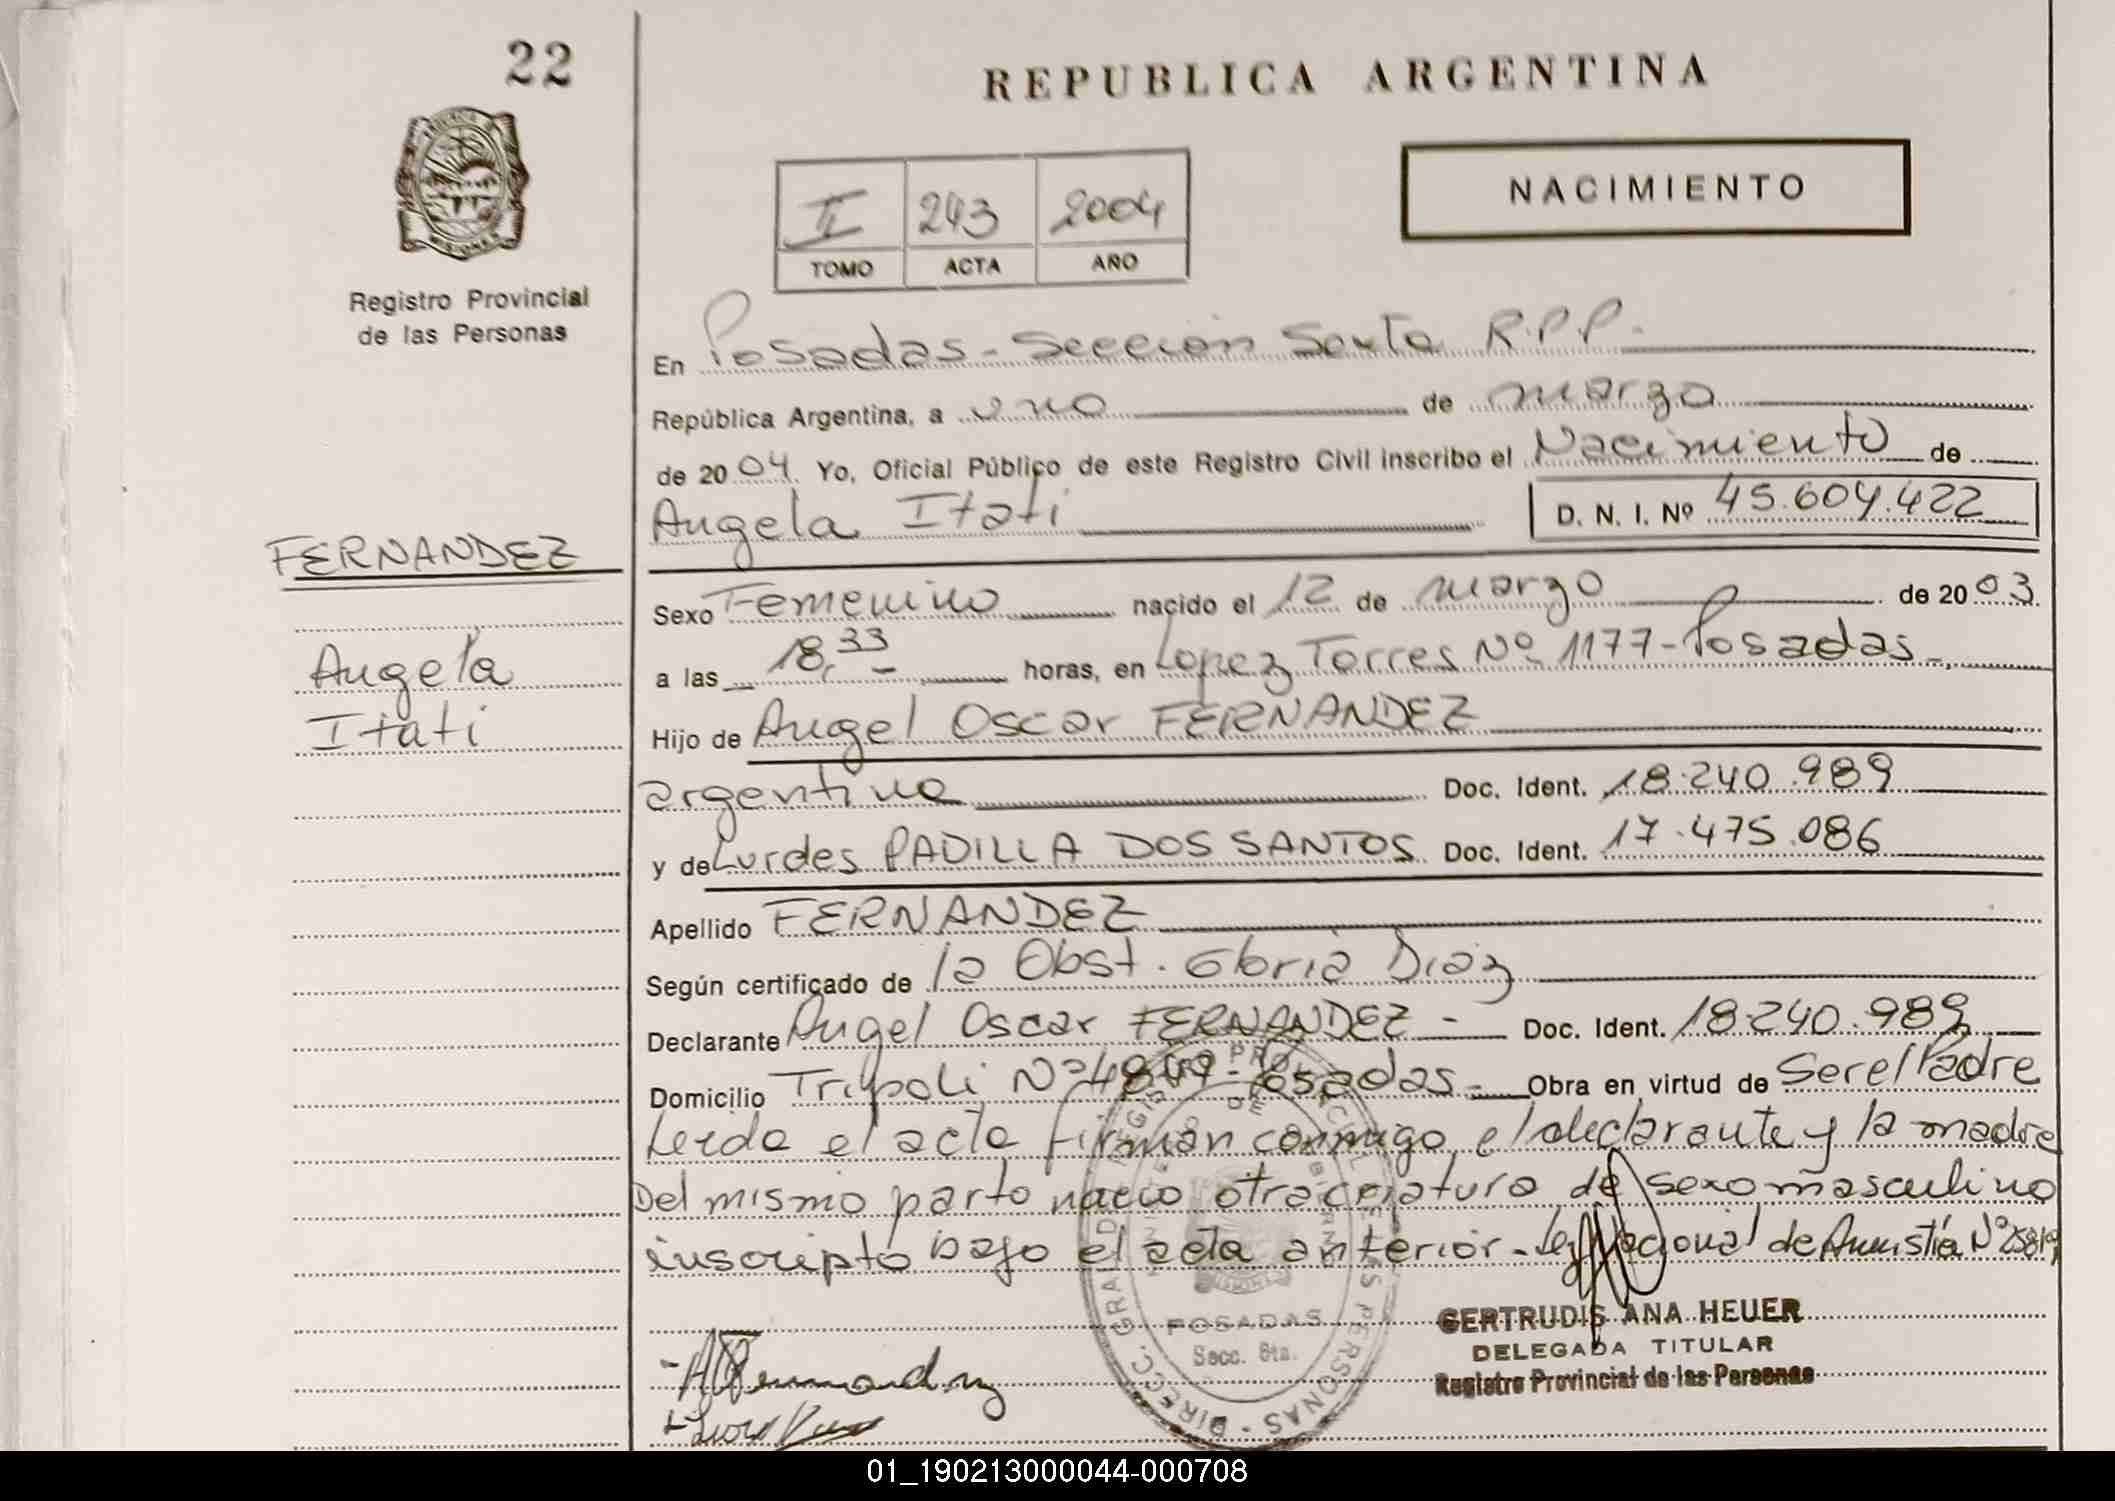 22
REPUBLICA ARGENTINA
NACIMIENTO
II 243 2004
TOMO ACTA AÑO
MISIONES
Registro Provincial
de las Personas
En Posadas - Sección Sexta R.P.P.
República Argentina, a uno de marzo
de 2004. Yo, Oficial Público de este Registro Civil inscribo el Nacimiento de
Angela Itati D. N. I. Nº 45.604.422
FERNANDEZ
Angela
Itati
Sexo Femenino nacido el 12 de marzo de 2003
a las 18,33 horas, en Lopez Torres Nº 1177 - Posadas -
Hijo de Angel Oscar FERNANDEZ
argentino Doc. Ident. 18.240.989
y de Lurdes PADILLA DOS SANTOS Doc. Ident. 17.475.086
Apellido FERNANDEZ
Según certificado de la Obst. Gloria Diaz
Declarante Angel Oscar FERNANDEZ - Doc. Ident. 18.240.989
Domicilio Tripoli Nº - Posadas - Obra en virtud de Ser el Padre
Leida el acta firman conmigo el declarante y la madre
Del mismo parto nacio otra criatura de sexo masculino
inscripto bajo el acta anterior - Ley Nacional de Amnistía Nº
DIRECC. GRAL. DE REGISTRO PROVINCIAL DE LAS PERSONAS
POSADAS
Secc. 6ta.
GERTRUDIS ANA HEUER
DELEGADA TITULAR
Registro Provincial de las Personas
01_190213000044-000708